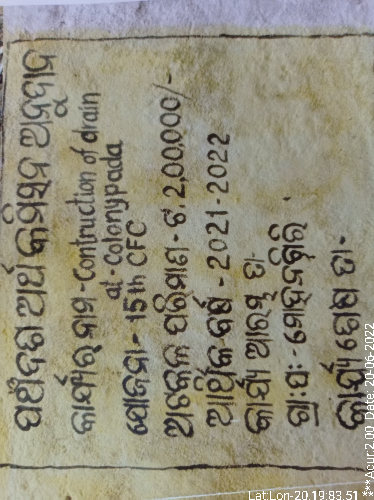 ପଞ୍ଚଦଶ ଅର୍ଥ କମିଶନ ଅନୁଦାନ
କାର୍ଯ୍ୟର ନାମ - Contruction of drain
at - Colonypada
ଯୋଜନା - 15th CFC
ଅଟକଳ ପରିମାଣ - ଟ. 2,00,000/-
ଆର୍ଥିକ ବର୍ଷ - 2021-2022
କାର୍ଯ୍ୟ ଆରମ୍ଭ ତା.
ଗ୍ରା: ପଂ: -
କାର୍ଯ୍ୟ ଶେଷ ତା -
Lat:Lon-20.19:83.51 ***Acur:2.00 Date: 20-06-2022